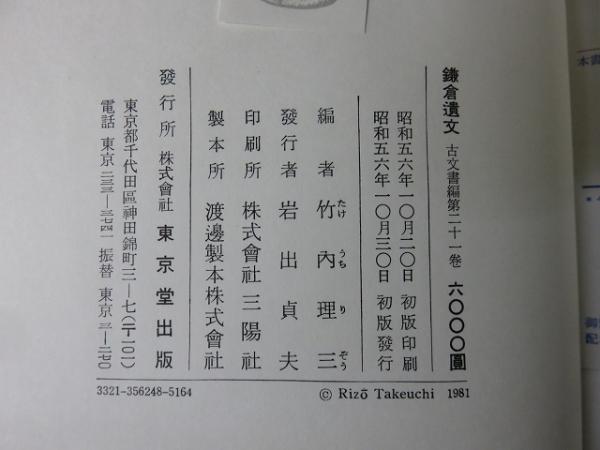 鎌倉遺文 古文書編第二十一巻 六〇〇〇圓
昭和五六年一〇月二〇日 初版印刷
昭和五六年一〇月三〇日 初版發行
編者 竹內理三
たけ うち り ぞう
發行者 岩出貞夫
印刷所 株式會社三陽社
製本所 渡邊製本株式會社
發行所 株式會社 東京堂出版
東京都千代田區神田錦町三―七(〒一〇一)
電話 東京 二三三―三七四一 振替 東京 三―二七〇
3321-356248-5164
© Rizō Takeuchi 1981
本書
御
配